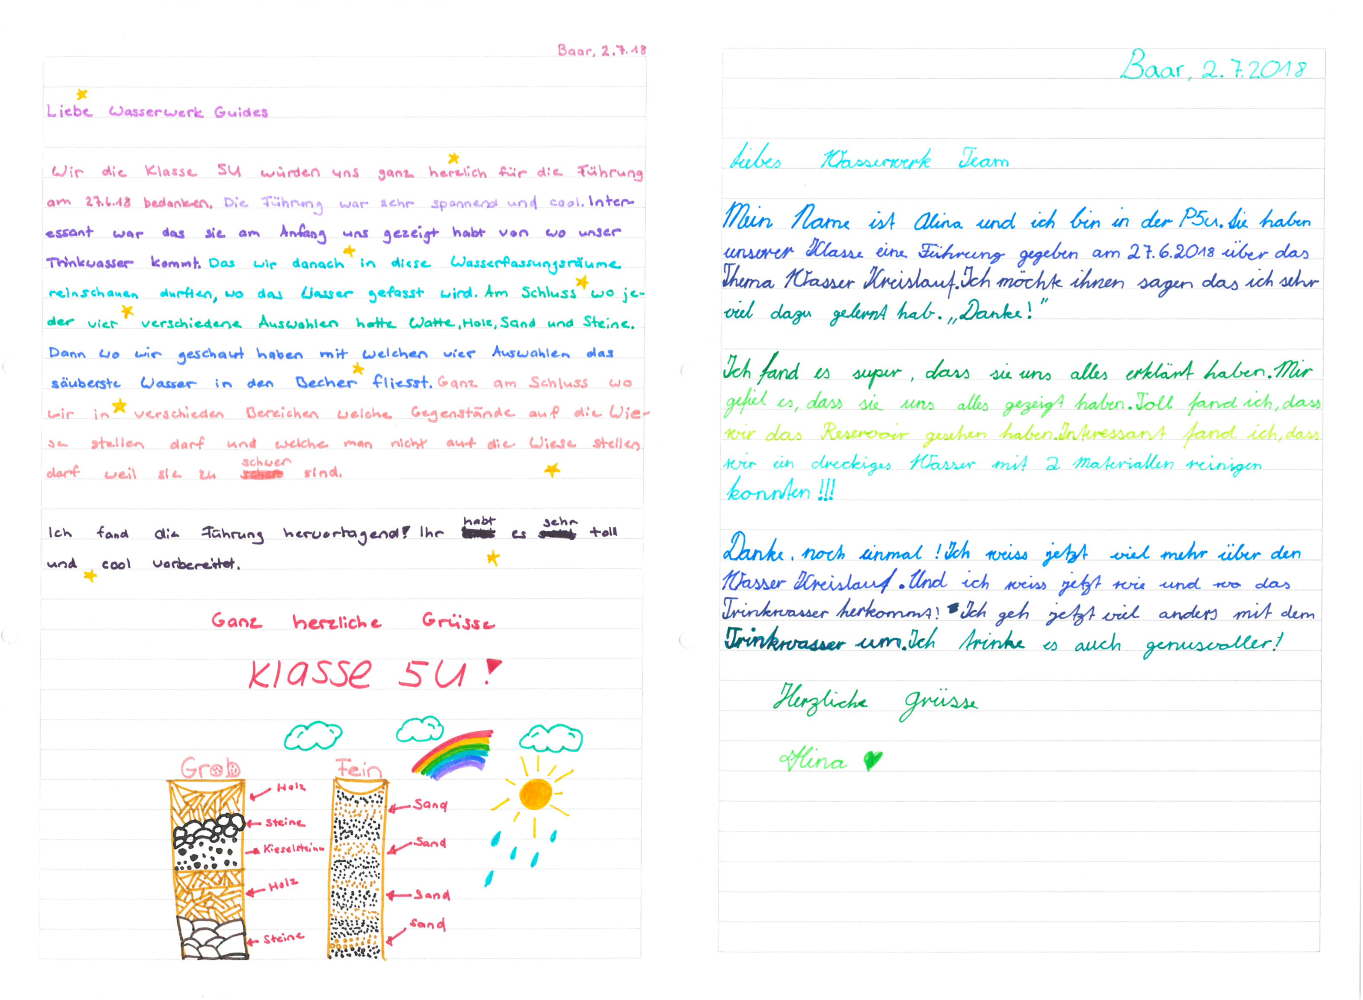 Baar, 2.7.18
Liebe Wasserwerk Guides
Wir die Klasse 5U würden uns ganz herzlich für die Führung
am 27.6.18 bedanken. Die Führung war sehr spannend und cool. Inter-
essant war das sie am Anfang uns gezeigt habt von wo unser
Trinkwasser kommt. Das wir danach in diese Wasserfassungsräume
reinschauen durften, wo das Wasser gefasst wird. Am Schluss wo je-
der vier verschiedene Auswahlen hatte Watte, Holz, Sand und Steine.
Dann wo wir geschaut haben mit welchen vier Auswahlen das
säuberste Wasser in den Becher fliesst. Ganz am Schluss wo
wir in verschieden Bereichen welche Gegenstände auf die Wie-
se stellen darf und welche man nicht auf die Wiese stellen
darf weil sie zu schwer sind.
Ich fand die Führung hervorragend! Ihr habt es sehr toll
und cool vorbereitet.
Ganz herzliche Grüsse
Klasse 5U!
Grob
Fein
Holz
Steine
Kieselsteine
Holz
Steine
Sand
Sand
Sand
Sand
Baar, 2.7.2018
Liebes Wasserwerk Team
Mein Name ist Alina und ich bin in der P5u. Sie haben
unserer Klasse eine Führung gegeben am 27.6.2018 über das
Thema Wasser Kreislauf. Ich möchte ihnen sagen das ich sehr
viel dazu gelernt hab. „Danke!"
Ich fand es super, dass sie uns alles erklärt haben. Mir
gefiel es, dass sie uns alles gezeigt haben. Toll fand ich, dass
wir das Reservoir gesehen haben. Interessant fand ich, dass
wir ein dreckiges Wasser mit 2 Materiallen reinigen
konnten!!!
Danke. noch einmal! Ich weiss jetzt viel mehr über den
Wasser Kreislauf. Und ich weiss jetzt wie und wo das
Trinkwasser herkommt! Ich geh jetzt viel anders mit dem
Trinkwasser um. Ich trinke es auch genusvoller!
Herzliche Grüsse
Alina